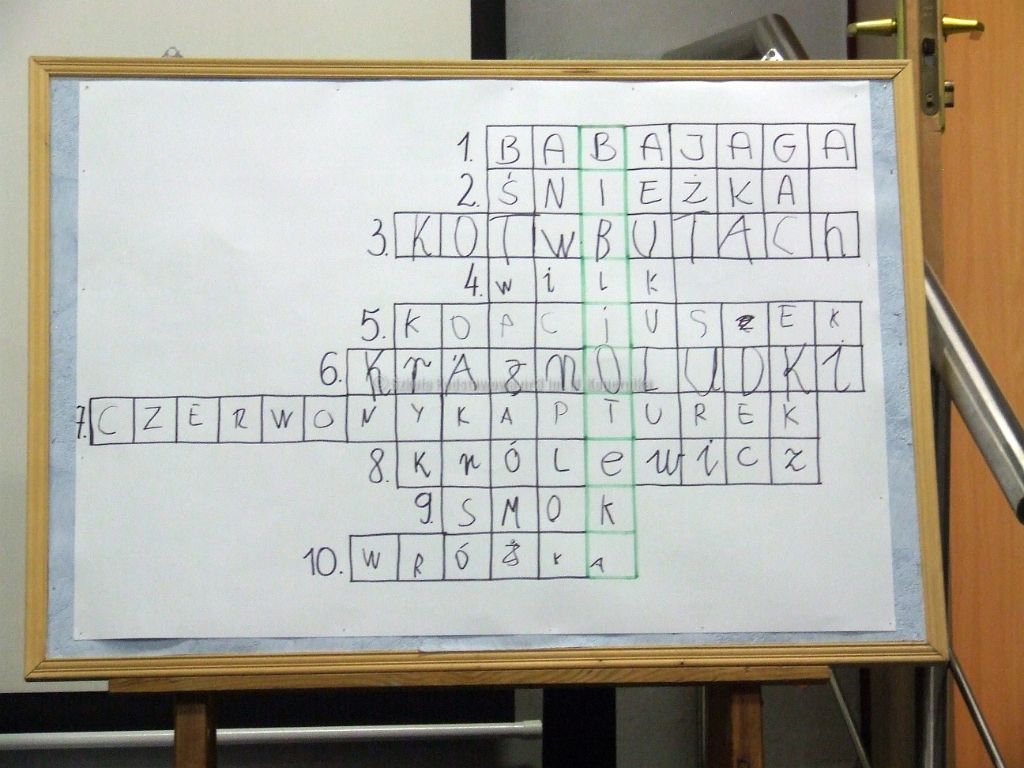 1. BABAJAGA
2. ŚNIEŻKA
3. KOTWBUTACh
4. wilK
5. KOPCiUSzEK
6. KrAsnOLUDKI
7. CZERWONYKAPTUREK
8. KrÓLewicz
9. SMOK
10. WRÓŻKA